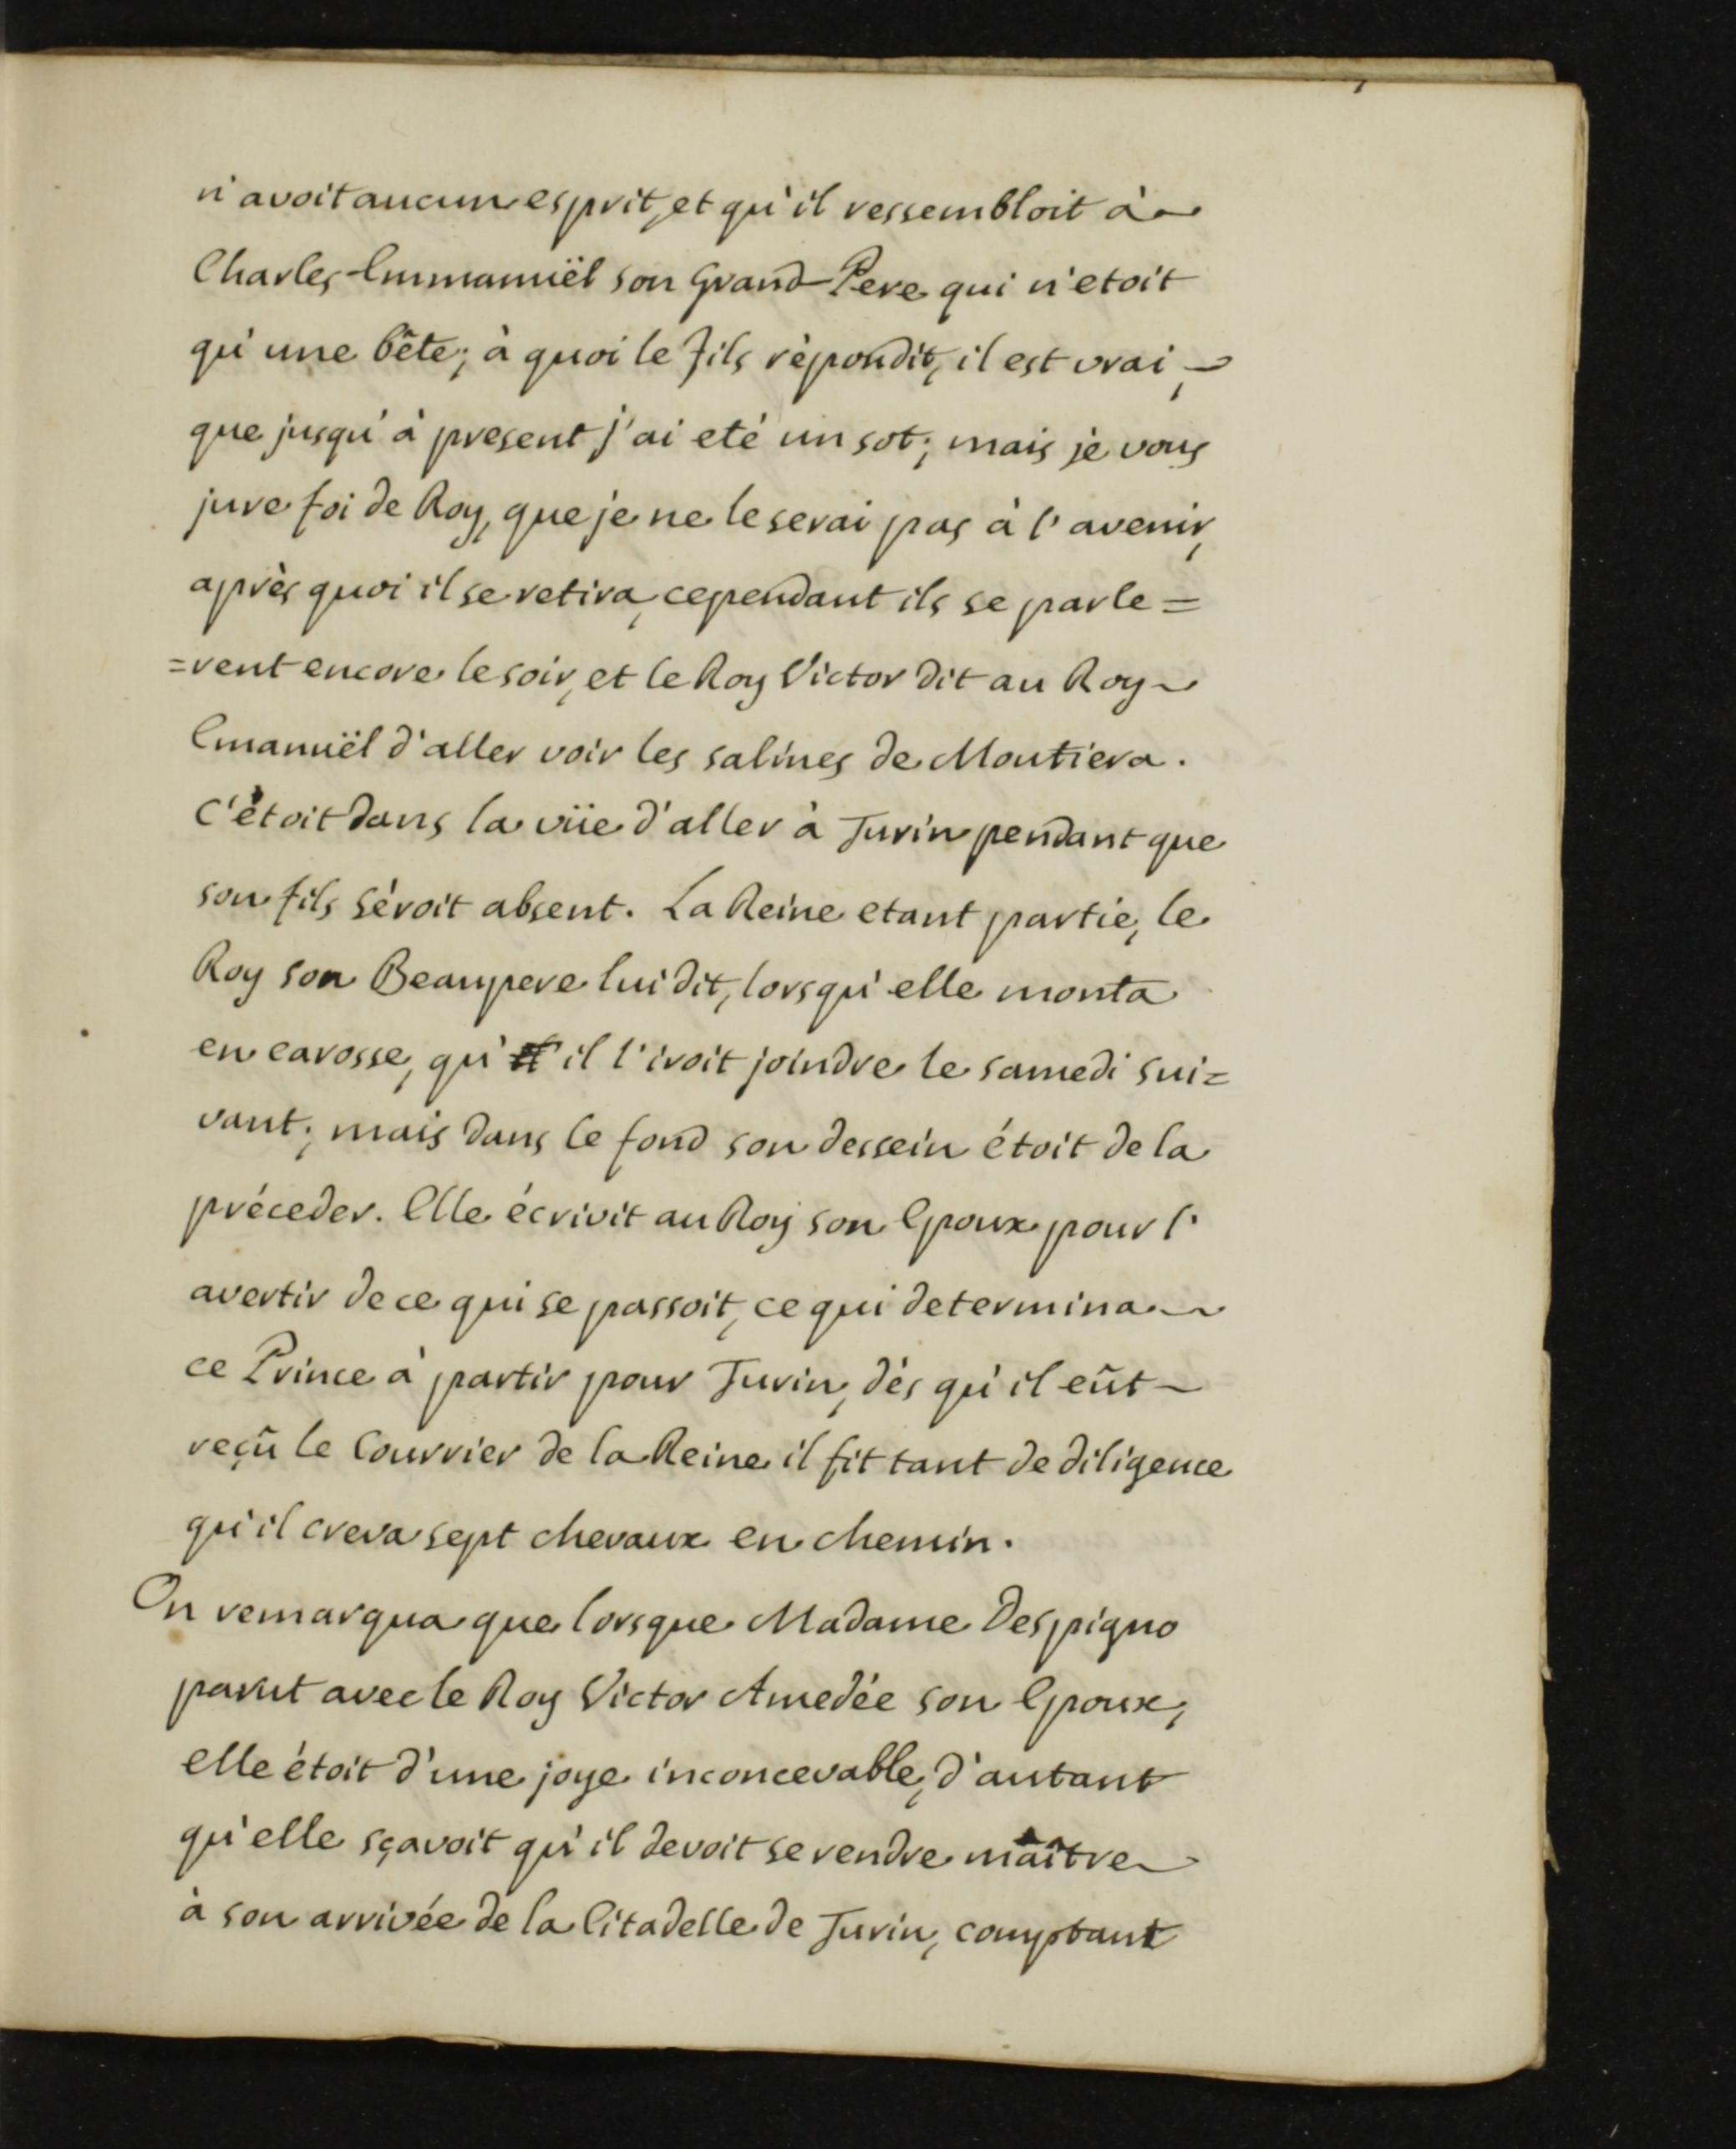 n'avoit aucun esprit, et qu'il ressembloit à
Charles-Emmanuël son Grand-Pere qui n'etoit
qu'une bête; à quoi le Fils répondit, il est vrai,
que jusqu'à present j'ai eté un sot; mais je vous
jure foi de Roy, que je ne le serai pas à l'avenir,
après quoi il se retira, cependant ils se parle=
=rent encore le soir, et le Roy Victor dit au Roy
Emanuël d'aller voir les salines de Moutiera.
C'étoit dans la vüe d'aller à Turin pendant que
son fils séroit absent. La Reine etant partie, le
Roy son Beaupere lui dit, lorsqu'elle monta
en carosse, qu'il l'iroit joindre le samedi sui=
vant; mais dans le fond son dessein étoit de la
préceder. Elle écrivit au Roy son Epoux pour l'
avertir de ce qui se passoit, ce qui determina
ce Prince à partir pour Turin, dés qu'il eût
reçû le Courrier de la Reine il fit tant de diligence
qu'il creva sept chevaux en chemin.
On remarqua que lorsque Madame Despigno
parut avec le Roy Victor Amedée son Epoux,
elle étoit d'une joye inconcevable, d'autant
qu'elle sçavoit qu'il devoit se rendre maître
à son arrivée de la Citadelle de Turin, comptant